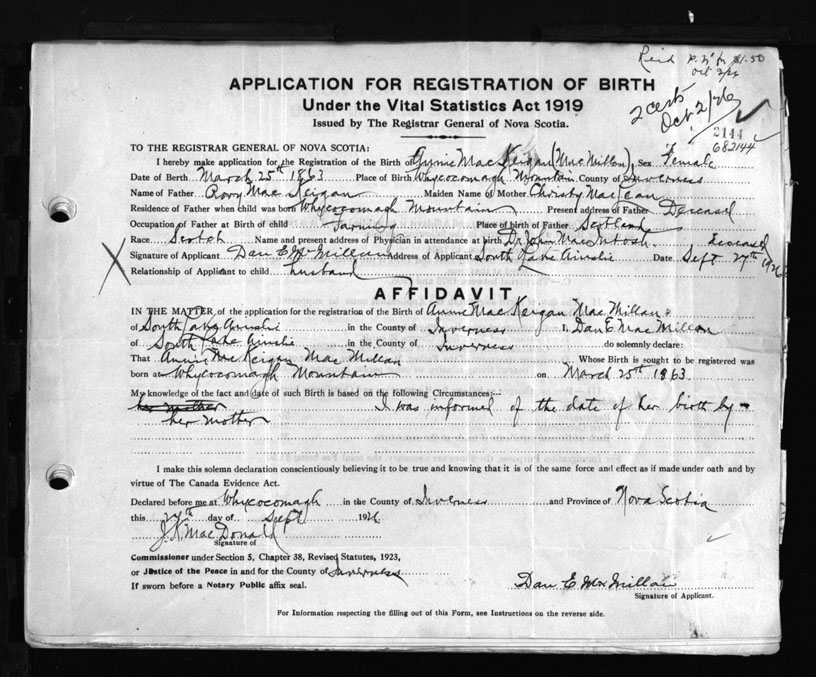 Reid P. N° for $1.50
Oct 2/26
APPLICATION FOR REGISTRATION OF BIRTH
Under the Vital Statistics Act 1919
Issued by The Registrar General of Nova Scotia.
2 certs
Oct 2/26
2144
682144
TO THE REGISTRAR GENERAL OF NOVA SCOTIA:
I hereby make application for the Registration of the Birth of Annie MacKeigan (MacMillan) Sex Female
Date of Birth March 25th 1863 Place of Birth Whycocomagh Mountain County of Inverness
Name of Father Rory MacKeigan Maiden Name of Mother Christy MacLean
Residence of Father when child was born Whycocomagh Mountain Present address of Father Deceased
Occupation of Father at Birth of child Farming Place of birth of Father Scotland
Race Scotch Name and present address of Physician in attendance at birth Dr John MacIntosh. Deceased
Signature of Applicant Dan E McMillan Address of Applicant South Lake Ainslie Date Sept 27th 1926
Relationship of Applicant to child husband
AFFIDAVIT
IN THE MATTER of the application for the registration of the Birth of Annie MacKeigan MacMillan
of South Lake Ainslie in the County of Inverness I, Dan E MacMillan
of South Lake Ainslie in the County of Inverness do solemnly declare:
That Annie MacKeigan MacMillan Whose Birth is sought to be registered was
born at Whycocomagh Mountain on March 25th 1863
My knowledge of the fact and date of such Birth is based on the following Circumstances:—
her mother I was informed of the date of her birth by
her mother
I make this solemn declaration conscientiously believing it to be true and knowing that it is of the same force and effect as if made under oath and by
virtue of The Canada Evidence Act.
Declared before me at Whycocomagh in the County of Inverness and Province of Nova Scotia
this 27th day of Sept 1926
J.K. MacDonald
Signature of
Commissioner under Section 5, Chapter 38, Revised Statutes, 1923,
or Justice of the Peace in and for the County of Inverness
If sworn before a Notary Public affix seal.
Dan E McMillan
Signature of Applicant.
For Information respecting the filling out of this Form, see Instructions on the reverse side.